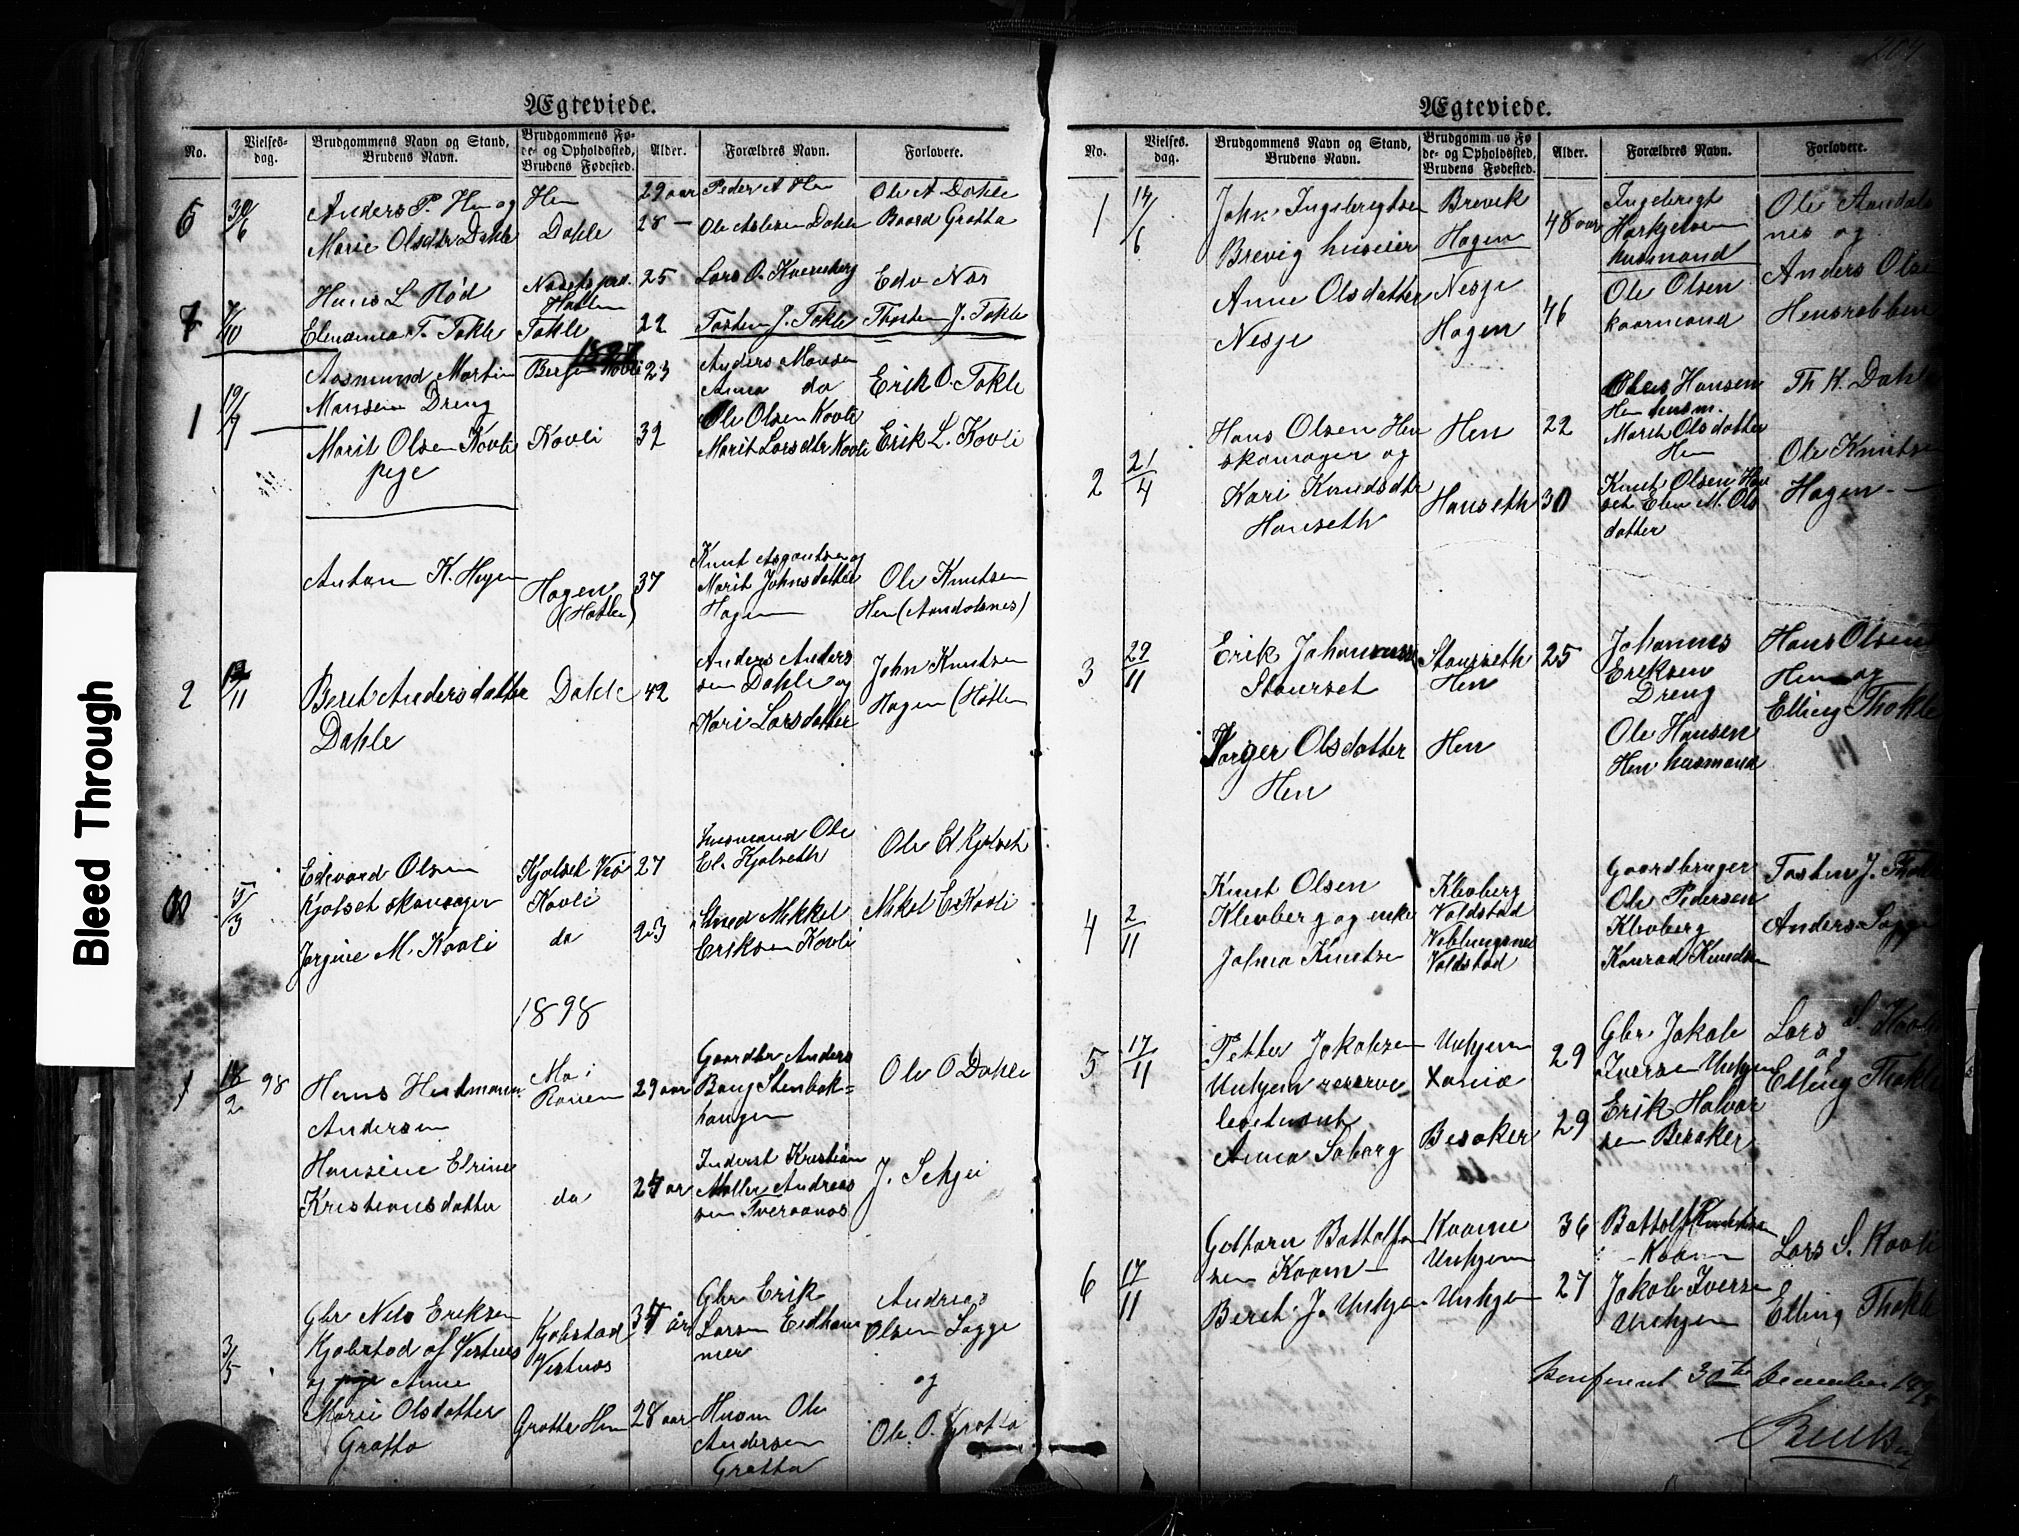 Bleed Through
Ægteviede.
No.
Vielses-
dag.
Brudgommens Navn og Stand,
Brudens Navn.
Brudgommens Fø-
de- og Opholdsted,
Brudens Fødested.
Alder.
Forældres Navn.
Forlovere.
6
30/6
Anders P. Hen og
Marie Olsdtr Dahle
Hen
Dahle
29 aar
28 —
Peder A Hen
Ole Dahle
Ole A Dahle
Baard Grøtta
7
7/10
Hans L Rød
T. Tokle
Tokle
25
22
Lars O.
Tosten J. Tokle
Edv Nor
Thosten J. Tokle
1897
1
19/7
Aasmund Martin
Monsen Dreng
Marit Olsen Kovli
pige
Kovli
23
32
Anders Monsen
Anna do
Ole Olsen Kovli
Marit Larsdtr Kovli
Erik O. Tokle
Erik L. Kovli
2
12/11
Anton K. Hagen
Beret Andersdatter
Dahle
Hagen
(Hatlen)
Dahle
37
42
Knut
Marit Johnsdatter
Hagen
Anders Anders
sen Dahle og
Kari Larsdatter
Ole Knutsen
Hen (Aandalsnes)
John Knutsen
Hagen (Hatlen
5/3
Edvard Olsen
Kjølset skomager
Jørgine M. Kovli
Kjølset Veø
Kovli
do
27
23
Husmand Ole
El. Kjølseth
Mikkel
Eriksen Kovli
Ole El Kjølseth
Mikel E Kovli
1898
1
18/2 98
Hans Hartmann
Andersen
Hansine Elrine
Kristiansdatter
Mo i
Ranen
do
29 aar
24 aar
Gaardbr Anders
Bang Stenbak-
haugen
Inderst Kristian
Møller Andreas
sen Tveraanes
Ole O Dahle
J. Setnes
3/5
Gbr Nils Eriksen
Kjølstad af Vestnes
og pige Anne
Marie Olsdatter
Grøtta
Kjølstad
Vestnes
Grøtta Hen
34 år
28 aar
Gbr Erik
Larsen Eidham
mer
Husm Ole
Andersen
Grøtta
Andreas
Olsen Sogge
og
Ole O. Grøtta
204
Ægteviede.
No.
Vielses-
dag.
Brudgommens Navn og Stand,
Brudens Navn.
Brudgomm us Fø
de- og Opholdsted,
Brudens Fødested.
Alder.
Forældres Navn.
Forlovere.
1
14/6
John Ingebregtsen
Brevig huseier
Anne Olsdatter
Nesje
Brevik
Hagen
Nesje
Hagen
48 aar
46
Ingebrigt
husmand
Ole Olsen
kaarmand
Ole Aandals
nes og
Anders Olsen
Hensrabben
2
21/4
Hans Olsen Hen
skomager og
Kari Knudsdtr
Hanseth
Hen
Hanseth
22
30
Hansen
Hen husm.
Marit Olsdatter
Hen
Knut Olsen Han
set Elen M. Ols
datter
Th K. Dahle
Ole Knutsen
Hagen —
3
29/11
Erik Johannesen
Staurset
Olsdatter
Hen
Staurseth
Hen
Hen
25
Johannes
Eriksen
Dreng
Ole Hansen
Hen husmand
Hans Olsen
Hen og
Elling Thokle
4
2/11
Knut Olsen
Klevberg og enke
Knutsen
Klevberg
Voldstad
Veblungsnes
Voldstad
Gaardbruger
Ole Pedersen
Klevberg
Konrad Knudsen
Tosten J. Thokle
Anders Sogge
5
17/11
Petter Jakobsen
Unhjem reserve
leietnant
Anna Soborg
Unhjem
Xania
Besaker
29
29
Gbr Jakob
Iversen Unhjem
Erik Halvor
sen Besaker
Lars S Kovli
og
Elling Thokle
6
17/11
Guttorm Bottolf
sen Kaarn
Beret J. Unhjem
Kaarn
Unhjem
Unhjem
36
27
Bottolf Knudsen
Kaarn
Jakob Iversen
Unhjem
Lars S. Kovli
Elling Thokle
Konferert 30te December 1898